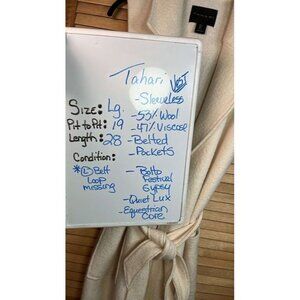 Tahari
- Sleeveless
Size: Lg.
- 53% Wool
Pit to Pit: 19
- 47% Viscose
Length: 28
- Belted
- Pockets
Condition:
*(L) Belt
Loop
missing
- Boho
Festival
Gypsy
- Quiet Lux
- Equestrian
Core